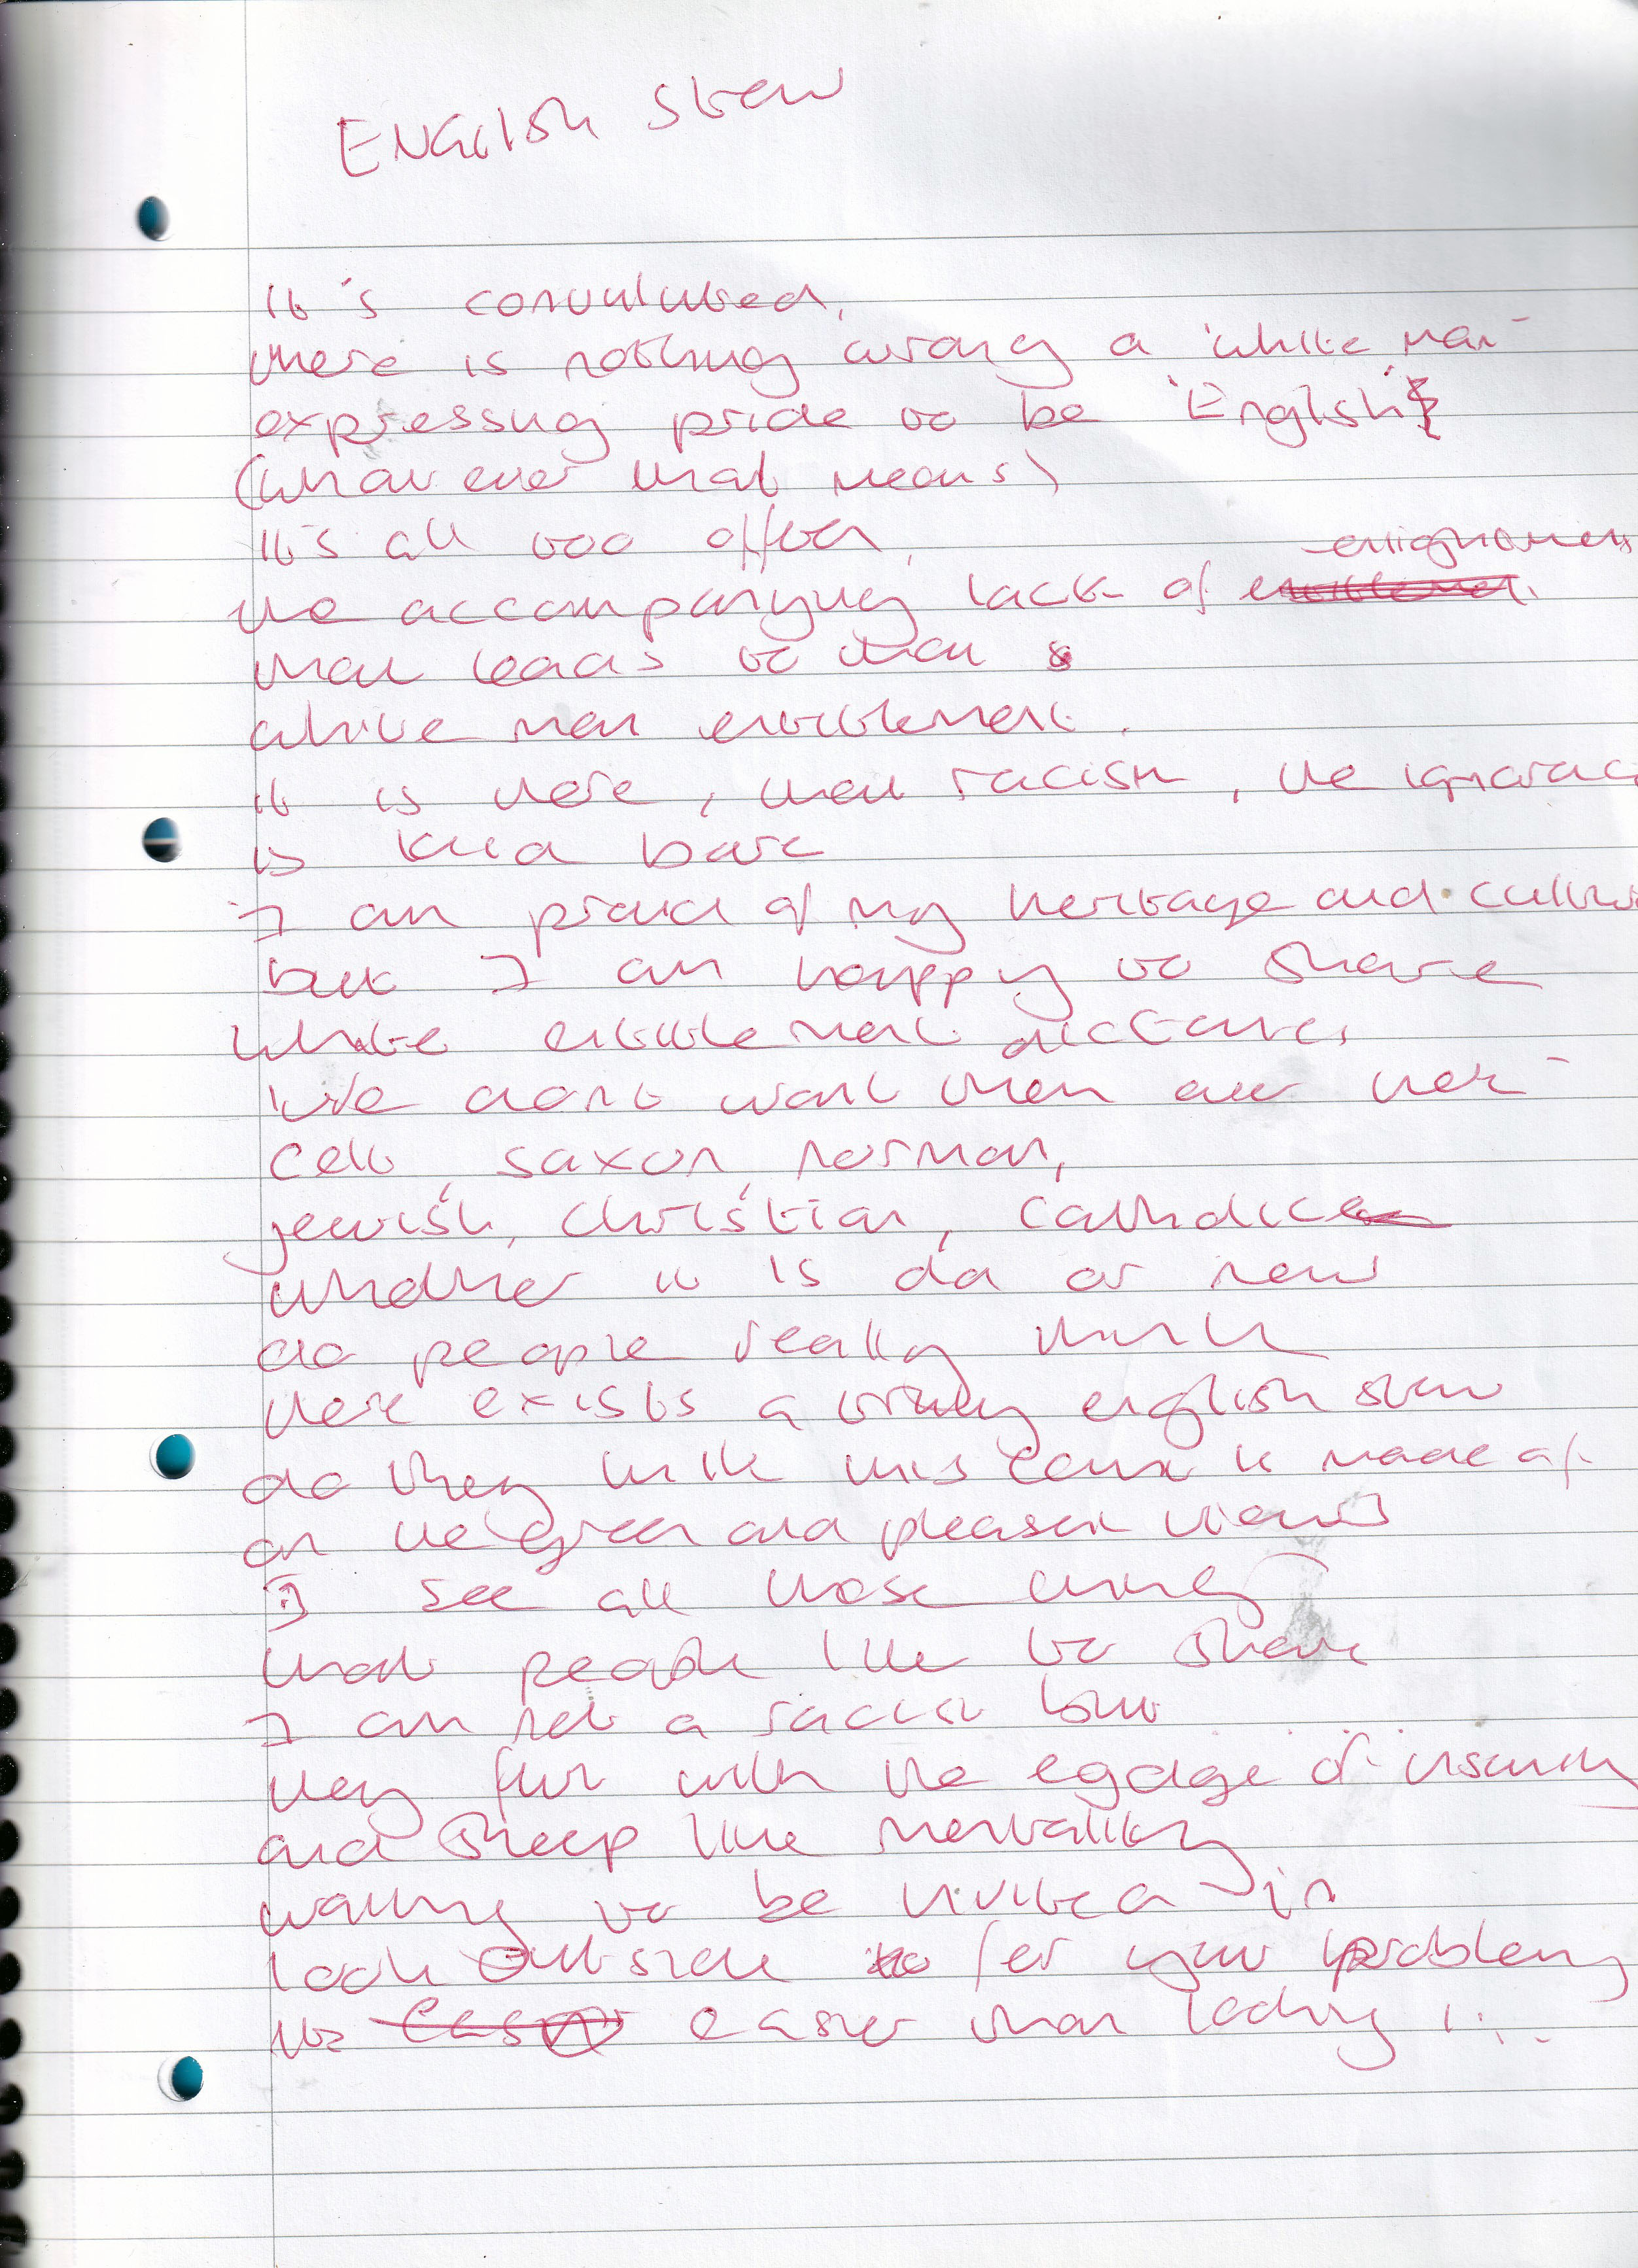 ENGLISH Stew
It's convuluted,
there is nothing wrong a 'white man'
expressing pride to be 'English'
(what ever that means)
It's all too often,
enlightenment
the accompanying lack of
that leads to that
white man entitlement.
it is there, that racism, the ignorance
is laid bare
I am proud of my heritage and culture
but I am happy to share
white entitlement dictates,
We dont want them over here
celt, saxon, norman,
jewish, christian, catholic
whether it is old or new
do people really think
there exists a truly english stew
do they think this land is made of
on the green and pleasant views
I see all those
that people like to share
I am not a racist but
they flirt with the egdge of insanity
and sheep like mentality
waiting to be invited in
look outside for your problems
its easier than looking in...